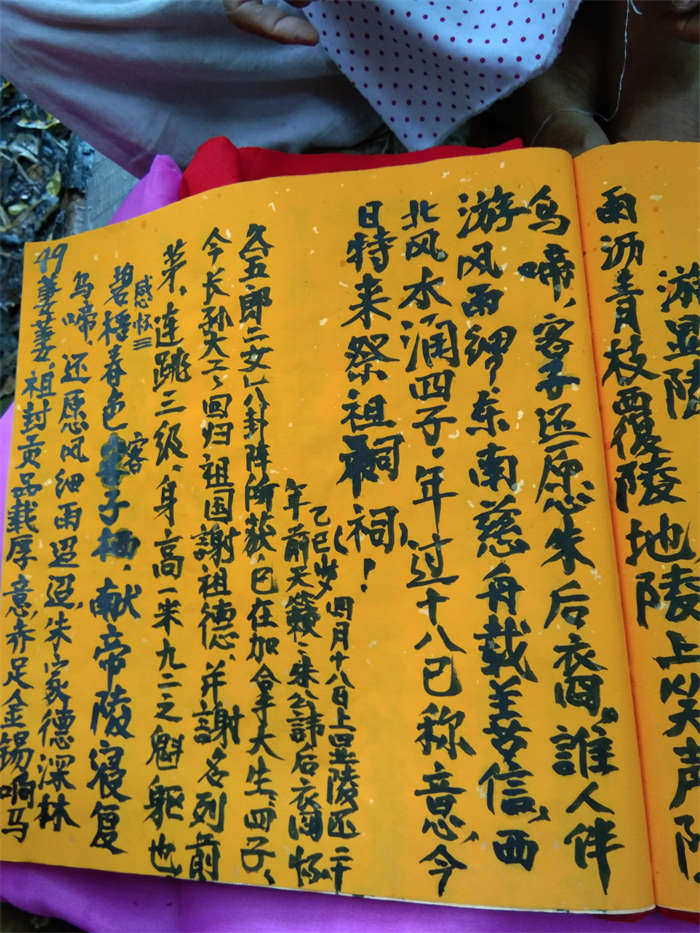 游皇陵
雨沥青枝覆陵地陵上笑声
鸟啼,客子还愿朱后裔。誰人伴
游风雨缈,东南慈舟载善信,西
北风水涌四子,年过十八已称意,今
日特来祭祖祠(祠)!
(乙巳岁 四月十八日上皇陵还二十
年前天籁朱公諱后裔 怀
久五郎二女八卦阵所获,已在加拿大生四子,
今长孙大工回归祖国謝祖德,并謝名列前
茅、连跳三级、身高一米九二之魁躯也
感怀三
碧梧春色客子栖,献帝陵寝复
鸟啼,还愿风细雨迢迢,朱家德深林
萋萋,祖封贡品载厚意,奔足金锡响马